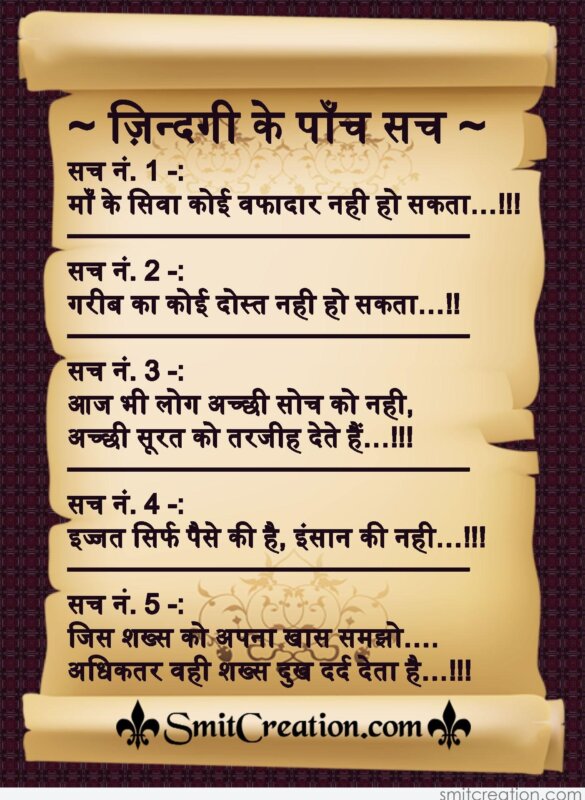 ~ ज़िन्दगी के पाँच सच ~
सच नं. 1 -:
माँ के सिवा कोई वफादार नही हो सकता...!!!
सच नं. 2 -:
गरीब का कोई दोस्त नही हो सकता...!!
सच नं. 3 -:
आज भी लोग अच्छी सोच को नही,
अच्छी सूरत को तरजीह देते हैं...!!!
सच नं. 4 -:
इज्जत सिर्फ पैसे की है, इंसान की नही...!!!
सच नं. 5 -:
जिस शख्स को अपना खास समझो....
अधिकतर वही शख्स दुख दर्द देता है...!!!
SmitCreation.com
smitcreation.com